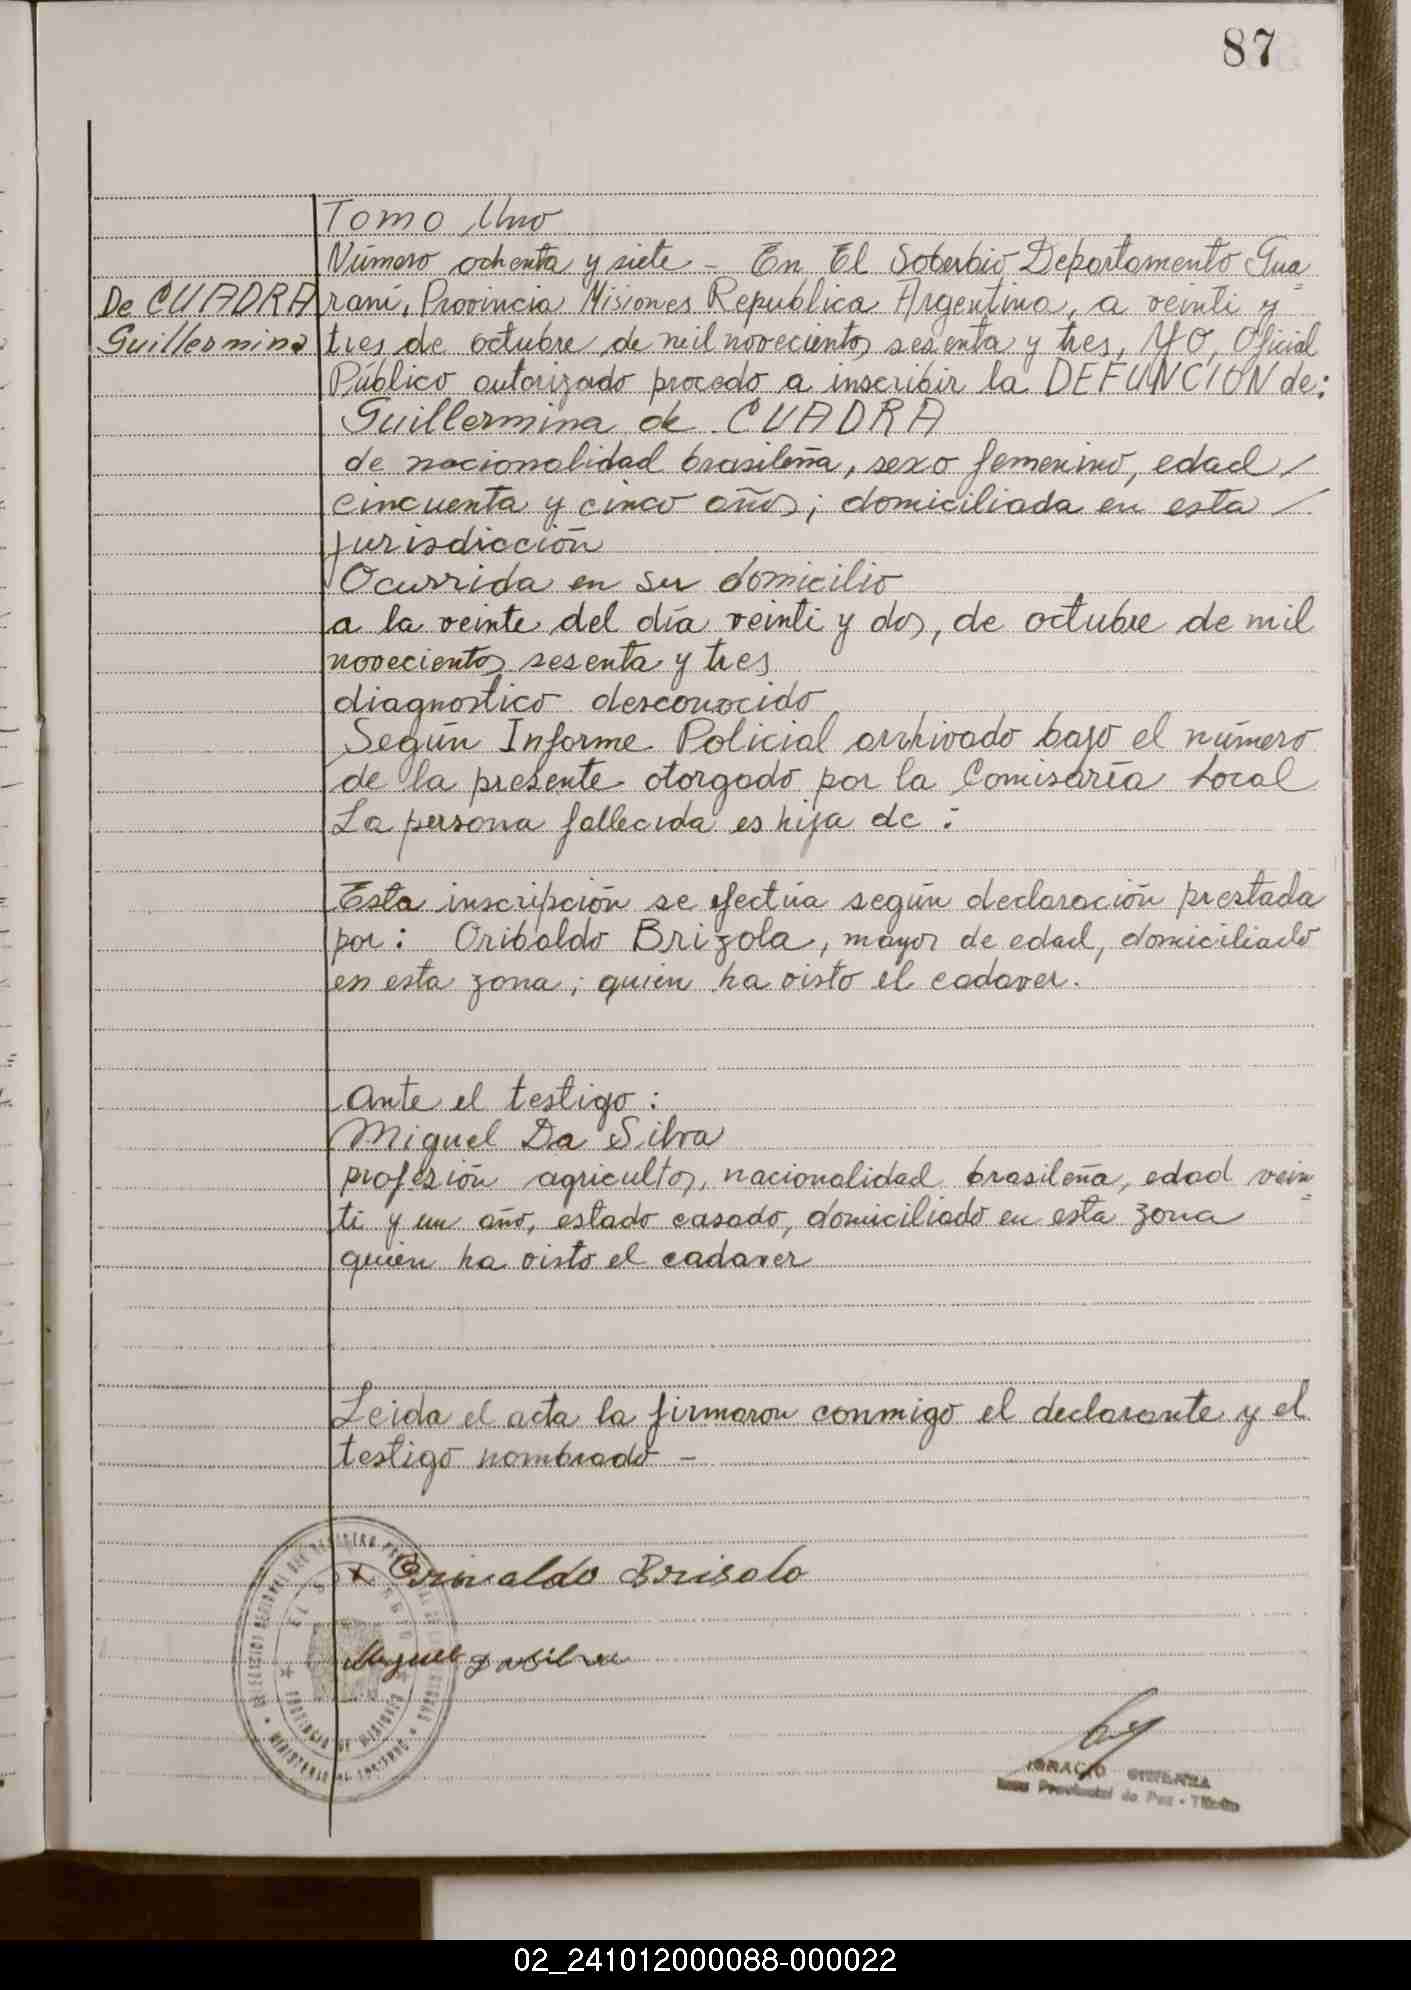 87
Tomo Uno
Número ochenta y siete - En El Soberbio Departamento Gua=
De CUADRA
Guillermina
raní, Provincia Misiones Republica Argentina, a veinti y
tres de octubre de mil novecientos sesenta y tres, YO, Oficial
Público autorizado procedo a inscribir la DEFUNCIÓN de:
Guillermina de CUADRA
de nacionalidad brasileña, sexo femenino, edad /
cincuenta y cinco años; domiciliada en esta /
jurisdicción
Ocurrida en su domicilio
a la veinte del día veinti y dos, de octubre de mil
novecientos sesenta y tres
diagnostico desconocido
Según Informe Policial archivado bajo el número
de la presente otorgado por la Comisaría Local
La persona fallecida es hija de :
Esta inscripción se efectúa según declaración prestada
por: Oribaldo Brizola, mayor de edad, domiciliado
en esta zona; quien ha visto el cadaver.
Ante el testigo :
Miguel Da Silva
profesión agricultor, nacionalidad brasileña, edad vein=
ti y un año, estado casado, domiciliado en esta zona
quien ha visto el cadaver
Leida el acta la firmaron conmigo el declarante y el
testigo nombrado -
x Brisola
Miguel da Silva
PROVINCIA DE MISIONES
MINISTERIO DE GOBIERNO
IGNACIO
Provincial de Paz - Titular
02_241012000088-000022